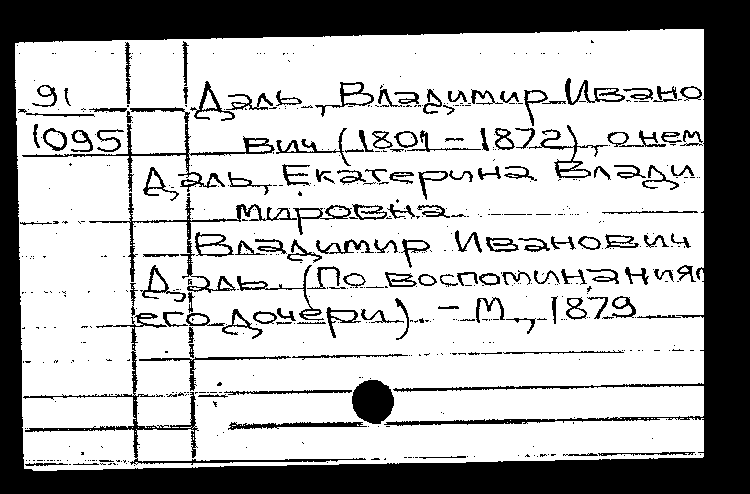 91
1095
Даль, Владимир Ивано
вич (1801 - 1872), о нем
Даль, Екатерина Влади
мировна
Владимир Иванович
Даль. (По воспоминания
его дочери). - М., 1879